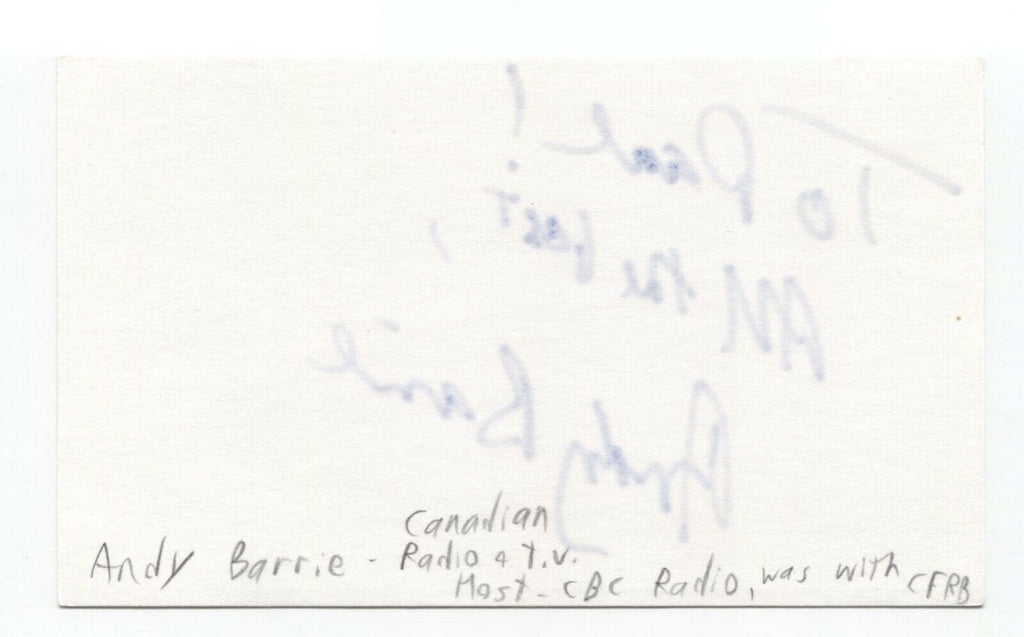 To Paul!
All the best,
Andy Barrie
Canadian
Andy Barrie - Radio & T.V.
Host - CBC Radio, was with CFRB